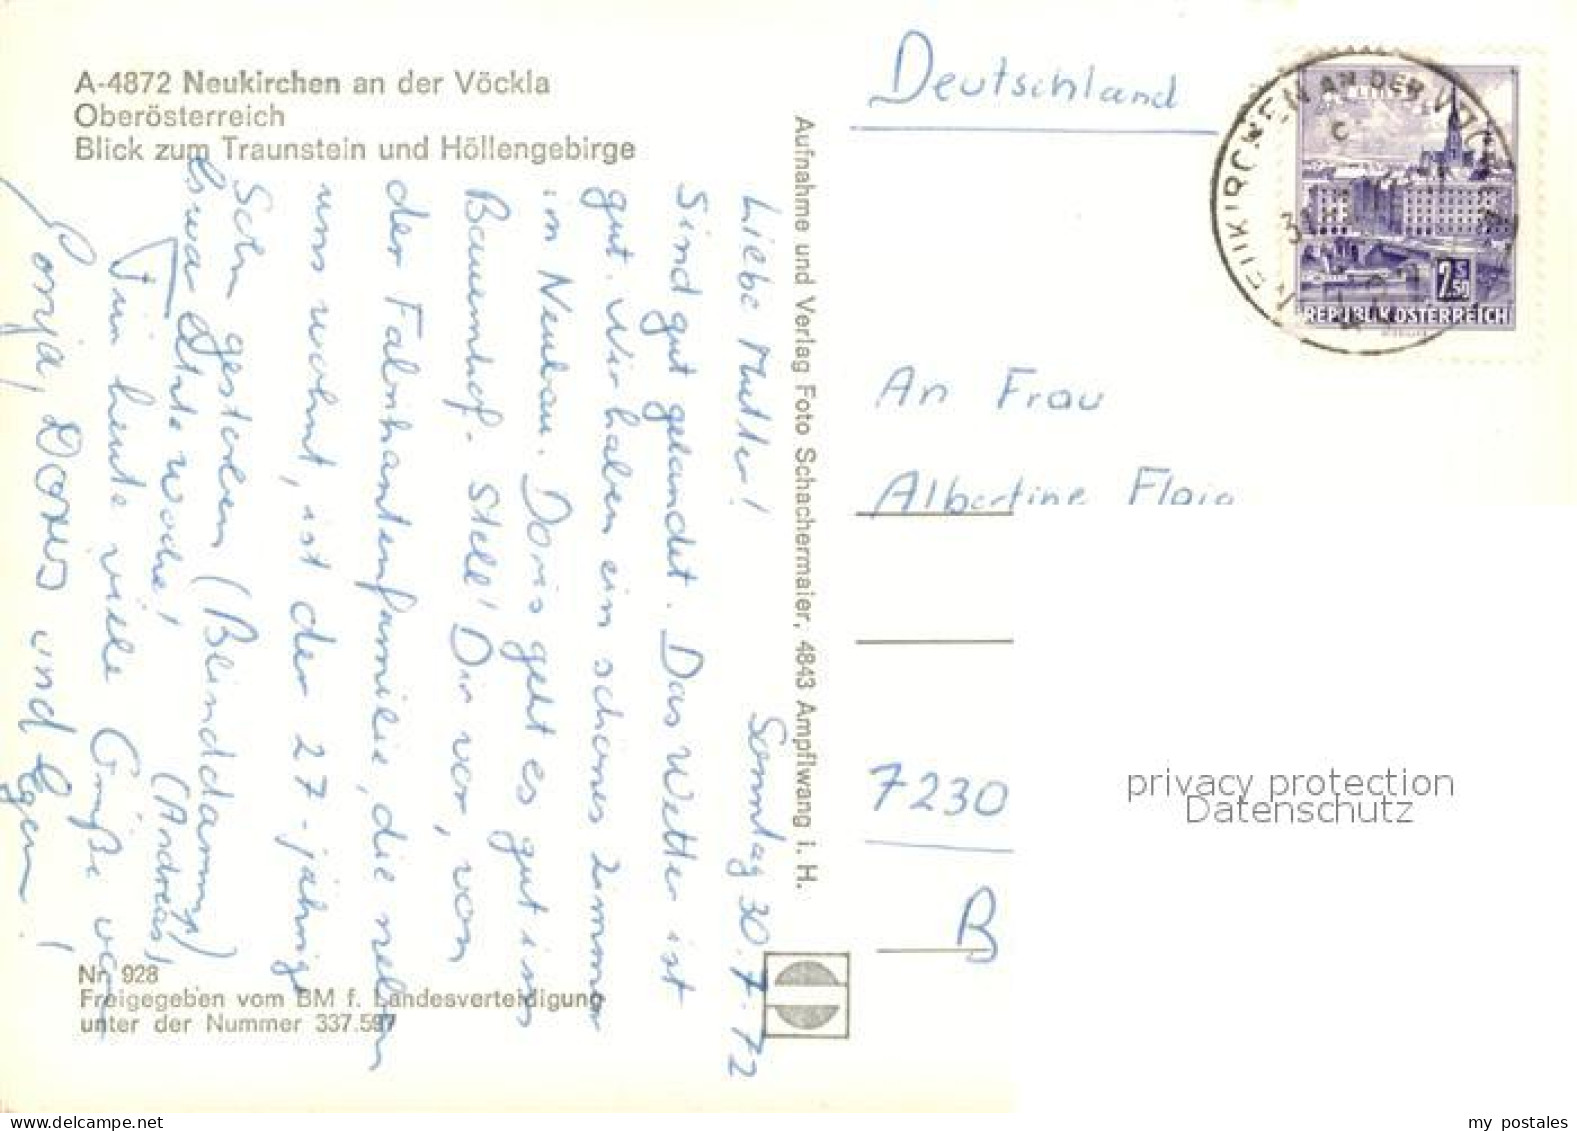 A-4872 Neukirchen an der Vöckla
Oberösterreich
Blick zum Traunstein und Höllengebirge
Sonntag 30.7.72
Liebe Mutter!
Sind gut gelandet. Das Wetter ist
gut. Wir haben ein schönes Zimmer
im Neubau. Doris geht es gut im
Bauernhof. Stell' Dir vor, von
der Fabrikantenfamilie, die neben
uns wohnt, ist der 27-jährige
Sohn gestorben (Blinddarm)
Es war letzte Woche! (Andreas)
Für heute viele Grüße von
Sonja, Doris und Egon!
Nr. 928
Freigegeben vom BM f. Landesverteidigung
unter der Nummer 337.597
Aufnahme und Verlag Foto Schachermaier, 4843 Ampflwang i. H.
Deutschland
NEUKIRCHEN AN DER VÖCKLA
2.50
REPUBLIK ÖSTERREICH
An Frau
Albertine
7230
privacy protection
Datenschutz
my postales